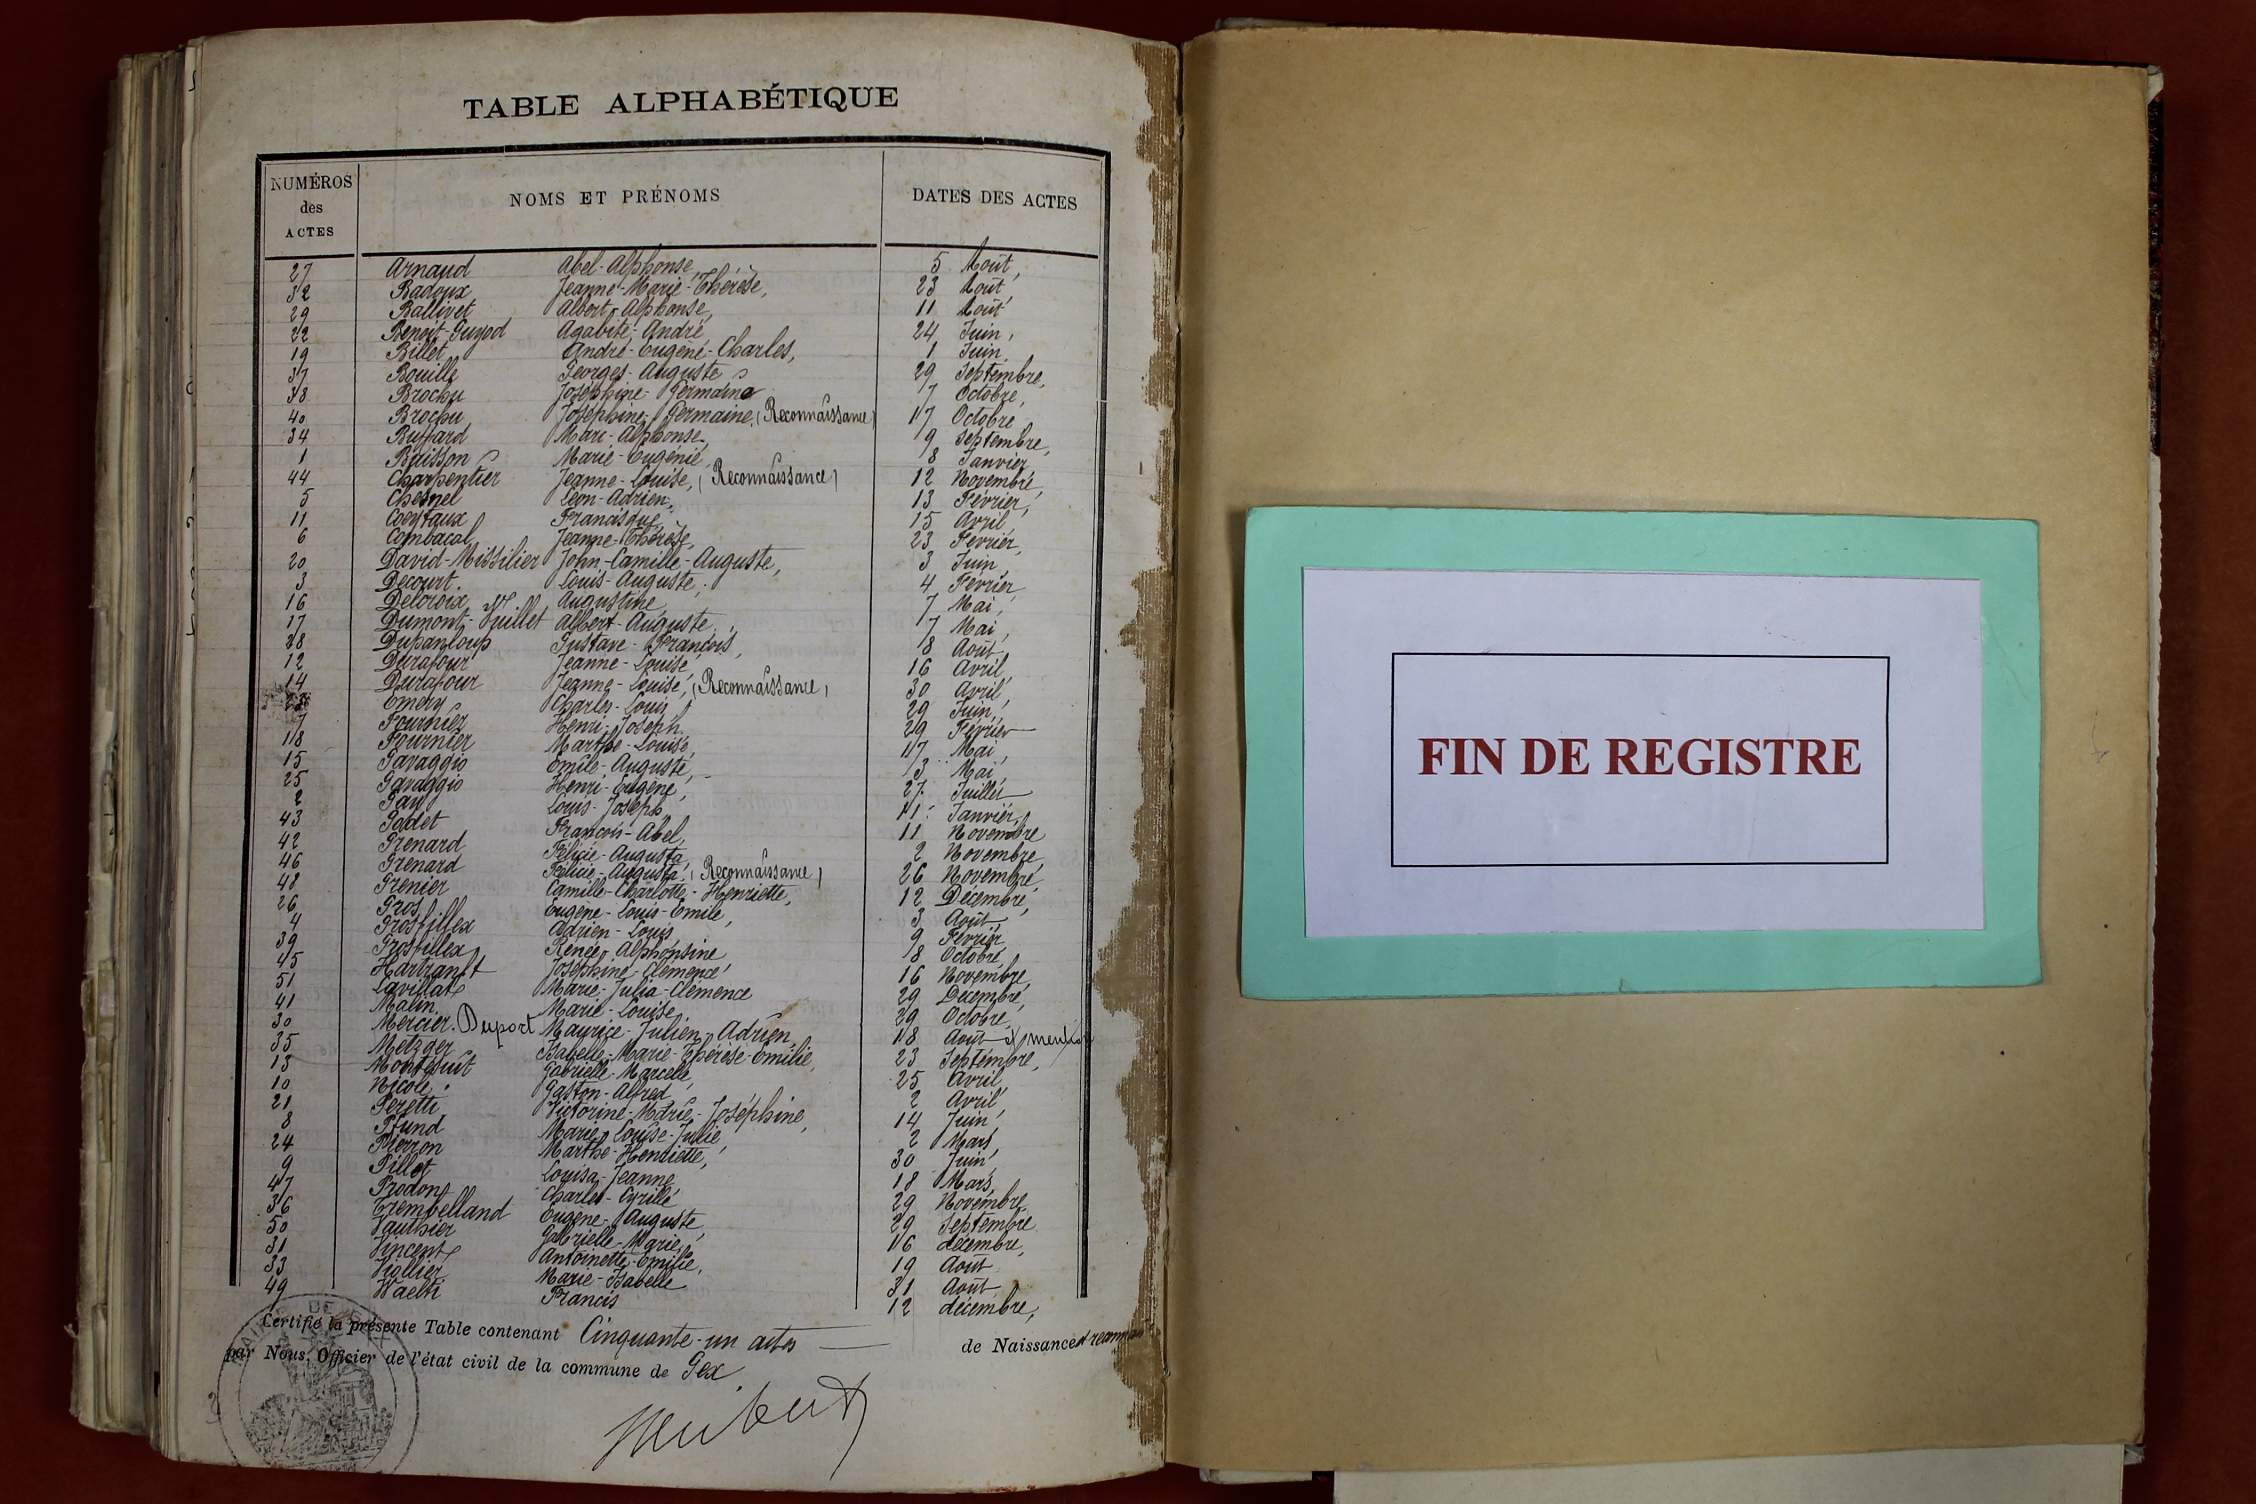 TABLE ALPHABÉTIQUE
NUMÉROS des ACTES NOMS ET PRÉNOMS DATES DES ACTES
27 Arnaud Abel-Alphonse, 5 Août,
32 Badoux Jeanne-Marie-Thérèse, 23 Août,
29 Ballivet Albert-Alphonse, 11 Août
22 Benoit-Guyod Agabite-André 24 Juin,
19 Billet André-Eugène-Charles, 1 Juin
37 Bouille Georges-Auguste 29 Septembre,
38 Brochu Joséphine-Germaine 7 Octobre,
40 Brochu Joséphine-Germaine, (Reconnaissance) 17 Octobre
34 Buffard Marc-Alphonse, 9 Septembre,
1 Buisson Marie-Eugénie, 8 Janvier
44 Charpentier Jeanne-Louise, (Reconnaissance) 12 Novembre,
5 Chesnel Léon-Adrien, 13 Février,
11 Coeytaux Francisque, 15 Avril,
6 Combacal Jeanne-Thérèse, 23 Février,
20 David-Missilier John-Camille-Auguste, 3 Juin,
3 Decourt Louis-Auguste, 4 Février,
16 Delcroix Augustine, 7 Mai,
17 Dumont-Vuillet Albert-Auguste, 7 Mai,
28 Dupanloup Gustave-François, 8 Août,
12 Durafour Jeanne-Louise, 16 Avril,
14 Durafour Jeanne-Louise, (Reconnaissance) 30 Avril,
23 Emery Charles-Louis, 29 Juin,
7 Fournier Henri-Joseph, 29 Février
18 Fournier Marthe-Louise, 17 Mai,
15 Gavaggio Emile-Auguste, 3 Mai,
25 Gavaggio Henri-Eugène, 27 Juillet
2 Gay Louis-Joseph, 11 Janvier,
43 Godet François-Abel, 11 Novembre
42 Grenard Félicie-Augusta, 2 Novembre,
46 Grenard Félicie-Augusta, (Reconnaissance) 26 Novembre,
48 Grenier Camille-Charlotte-Henriette, 12 Décembre,
26 Gros Eugène-Louis-Emile, 3 Août,
4 Grosfillex Adrien-Louis 9 Février
39 Grosfillex Renée-Alphonsine 8 Octobre,
45 Hartranft Joséphine-Clémence 16 Novembre,
51 Lavillat Marie-Julia-Clémence 29 Décembre,
41 Malin Marie-Louise, 29 Octobre,
30 Mercier-Duport Maurice-Julien-Adrien, 18 Août
35 Metzger Isabelle-Marie-Thérèse-Emilie, 23 Septembre,
13 Montessuit Gabrielle-Marcelle, 25 Avril,
10 Nicole Gaston-Alfred 2 Avril
21 Peretti Victorine-Marie-Joséphine, 14 Juin,
8 Pfund Marie-Louise-Julie, 2 Mars,
24 Pierron Marthe-Henriette, 30 Juin,
9 Pillet Louisa-Jeanne, 18 Mars,
47 Prodon Charles-Cyrille 29 Novembre,
36 Trembelland Eugène-Auguste, 29 Septembre
50 Vauthier Gabrielle-Marie, 16 décembre,
31 Vincent Antoinette-Emilie, 19 Août
33 Viollier Marie-Isabelle 31 Août
49 Waelti Francis 12 décembre,
Certifié la présente Table contenant Cinquante-un actes de Naissance
par Nous, Officier de l'état civil de la commune de Gex
FIN DE REGISTRE